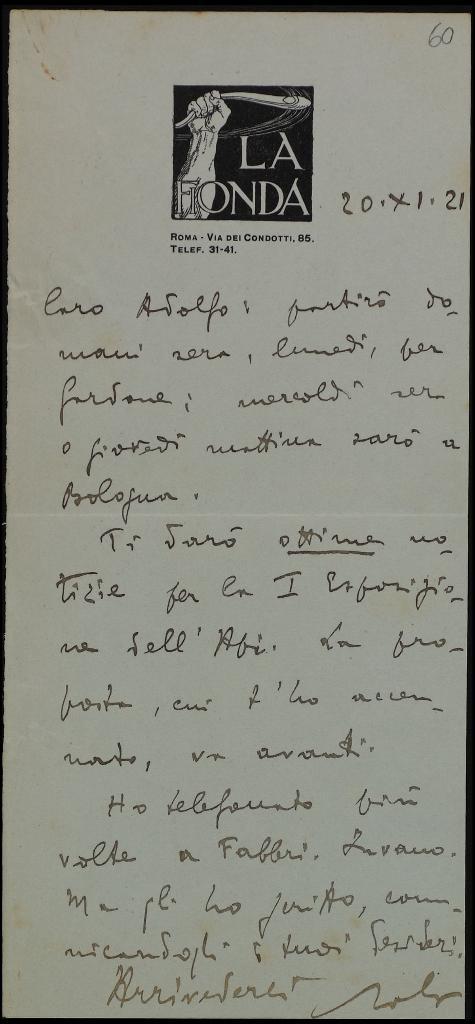 60
LA
FIONDA
20.XI.21
ROMA - VIA DEI CONDOTTI, 85.
TELEF. 31-41.
Caro Adolfo: partirò do-
mani sera, lunedì, per
Gardone; mercoldì sera
o giovedì mattina sarò a
Bologna.
Ti darò ottime no-
tizie per la I Esposizio-
ne dell'Api. La pro-
posta, cui t'ho accen-
nato, va avanti.
Ho telefonato più
volte a Fabbri. Invano.
Ma gli ho scritto, comu-
nicandogli i tuoi desideri.
Arrivederci